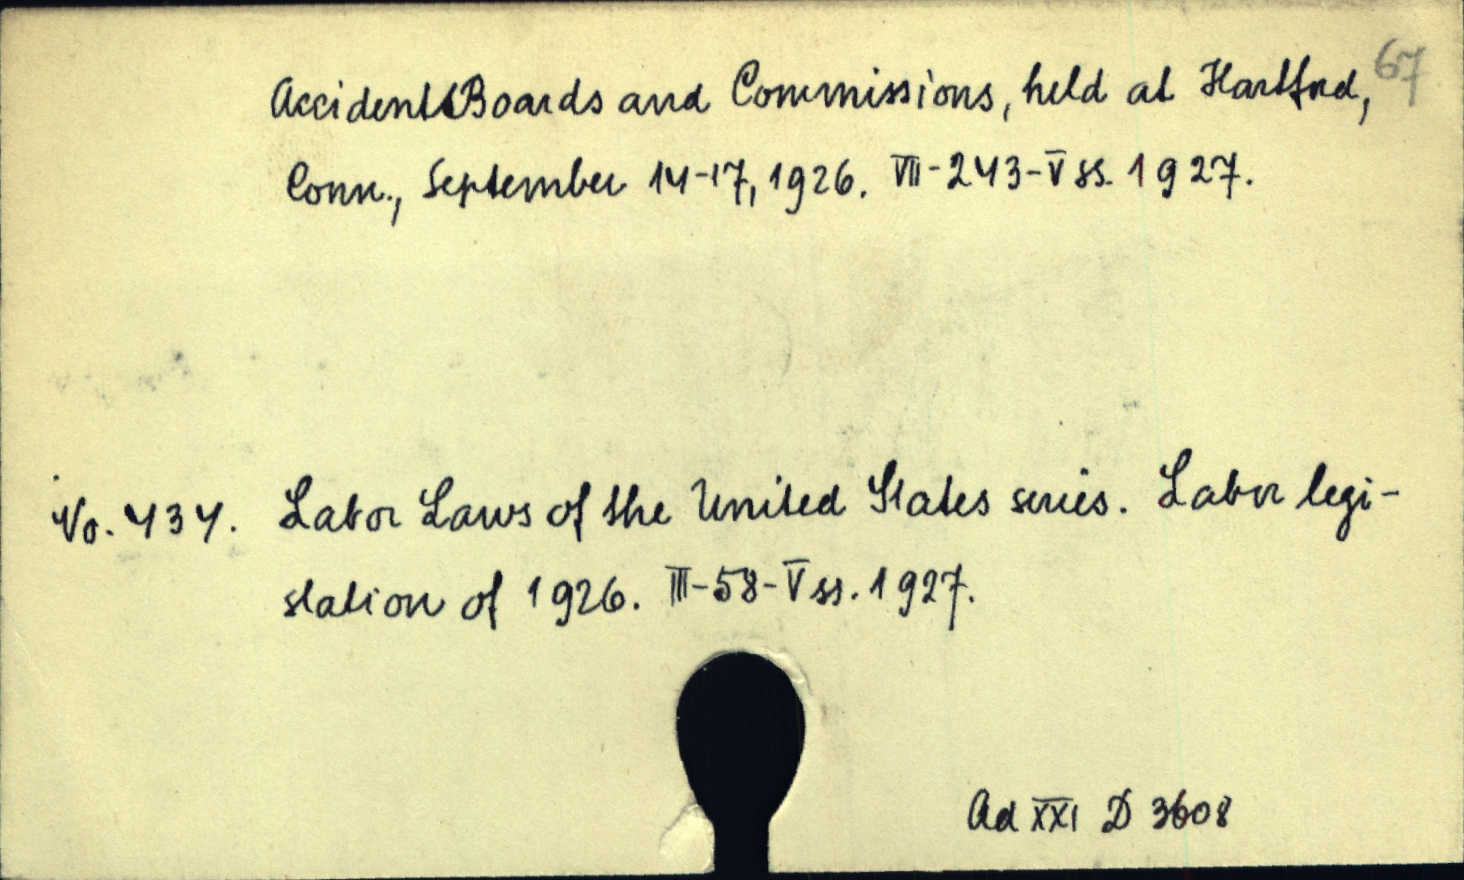 67
Accident Boards and Commissions, held at Hartford,
Conn., September 14-17, 1926. VII-243-V ss. 1927.
No. 434. Labor Laws of the United States series. Labor legi-
slation of 1926. III-58-V ss. 1927.
Ad XXI D 3608